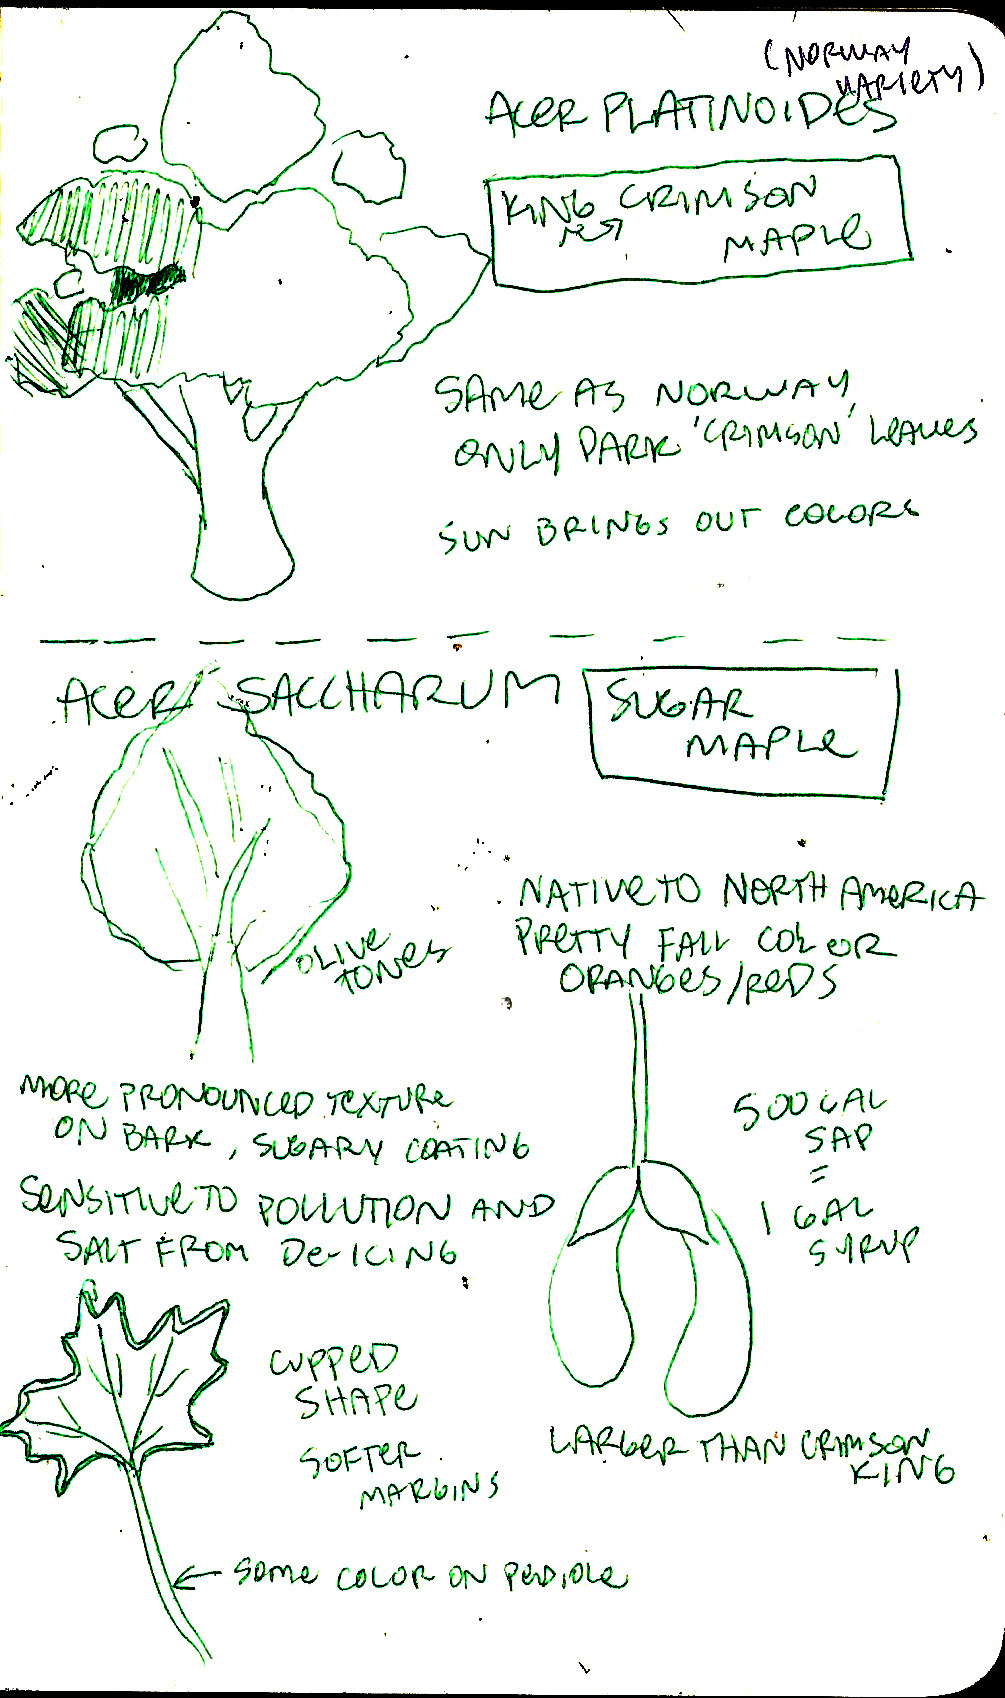 (NORWAY
VARIETY)
ACER PLATINOIDES
KING CRIMSON
MAPLE
SAME AS NORWAY
ONLY DARK 'CRIMSON' LEAVES
SUN BRINGS OUT COLORS
ACER SACCHARUM
SUGAR
MAPLE
NATIVE TO NORTH AMERICA
PRETTY FALL COLOR
ORANGES/REDS
OLIVE
TONES
MORE PRONOUNCED TEXTURE
ON BARK, SUGARY COATING
SENSITIVE TO POLLUTION AND
SALT FROM DE-ICING
500 GAL
SAP
=
1 GAL
SYRUP
CUPPED
SHAPE
SOFTER
MARGINS
LARGER THAN CRIMSON
KING
SOME COLOR ON PEDIOLE